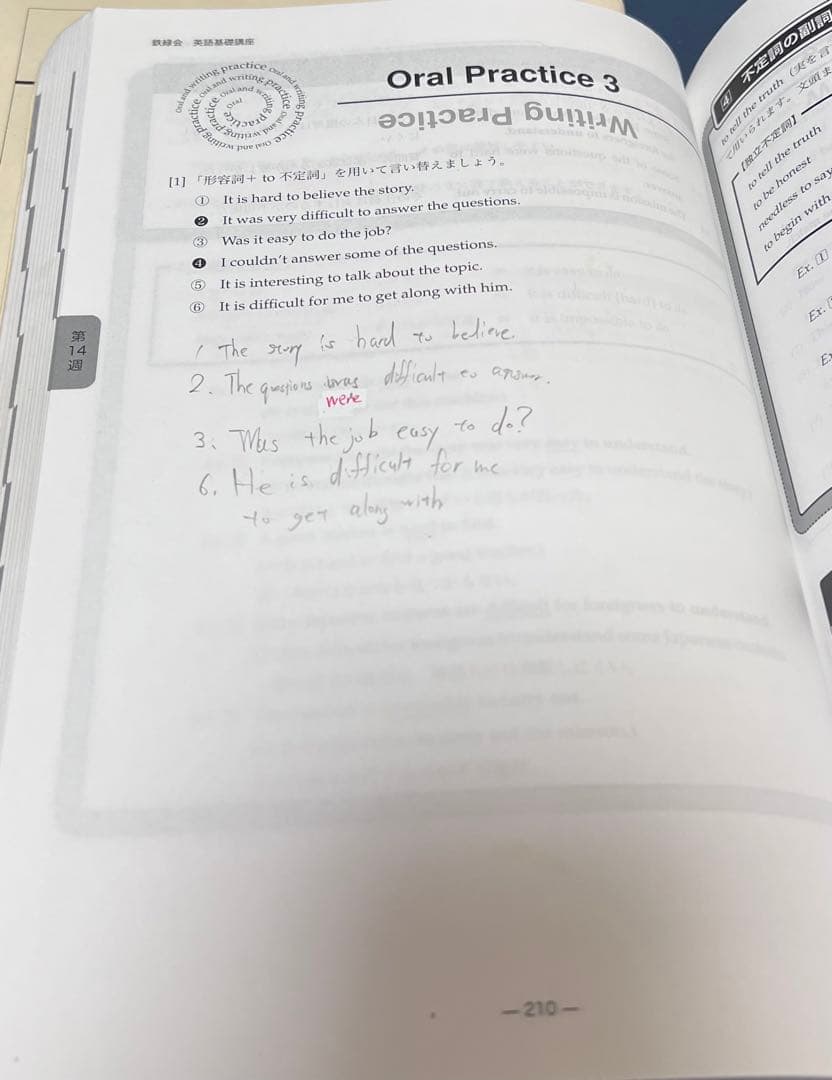 鉄緑会 英語基礎講座
Oral and writing practice Oral and writing practice Oral and writing practice
Oral Practice 3
Writing Practice
[1] 「形容詞+ to 不定詞」を用いて言い替えましょう。
① It is hard to believe the story.
❷ It was very difficult to answer the questions.
③ Was it easy to do the job?
❹ I couldn't answer some of the questions.
⑤ It is interesting to talk about the topic.
⑥ It is difficult for me to get along with him.
第14週
1 The story is hard to believe.
2. The questions was difficult to answer.
were
3. Was the job easy to do?
6. He is difficult for me
to get along with
—210—
[4] 不定詞の副詞
to tell the truth（実を言
で用いられます。文頭ま
【独立不定詞】
to tell the truth
to be honest
needless to say
to begin with
Ex. [1]
Ex.